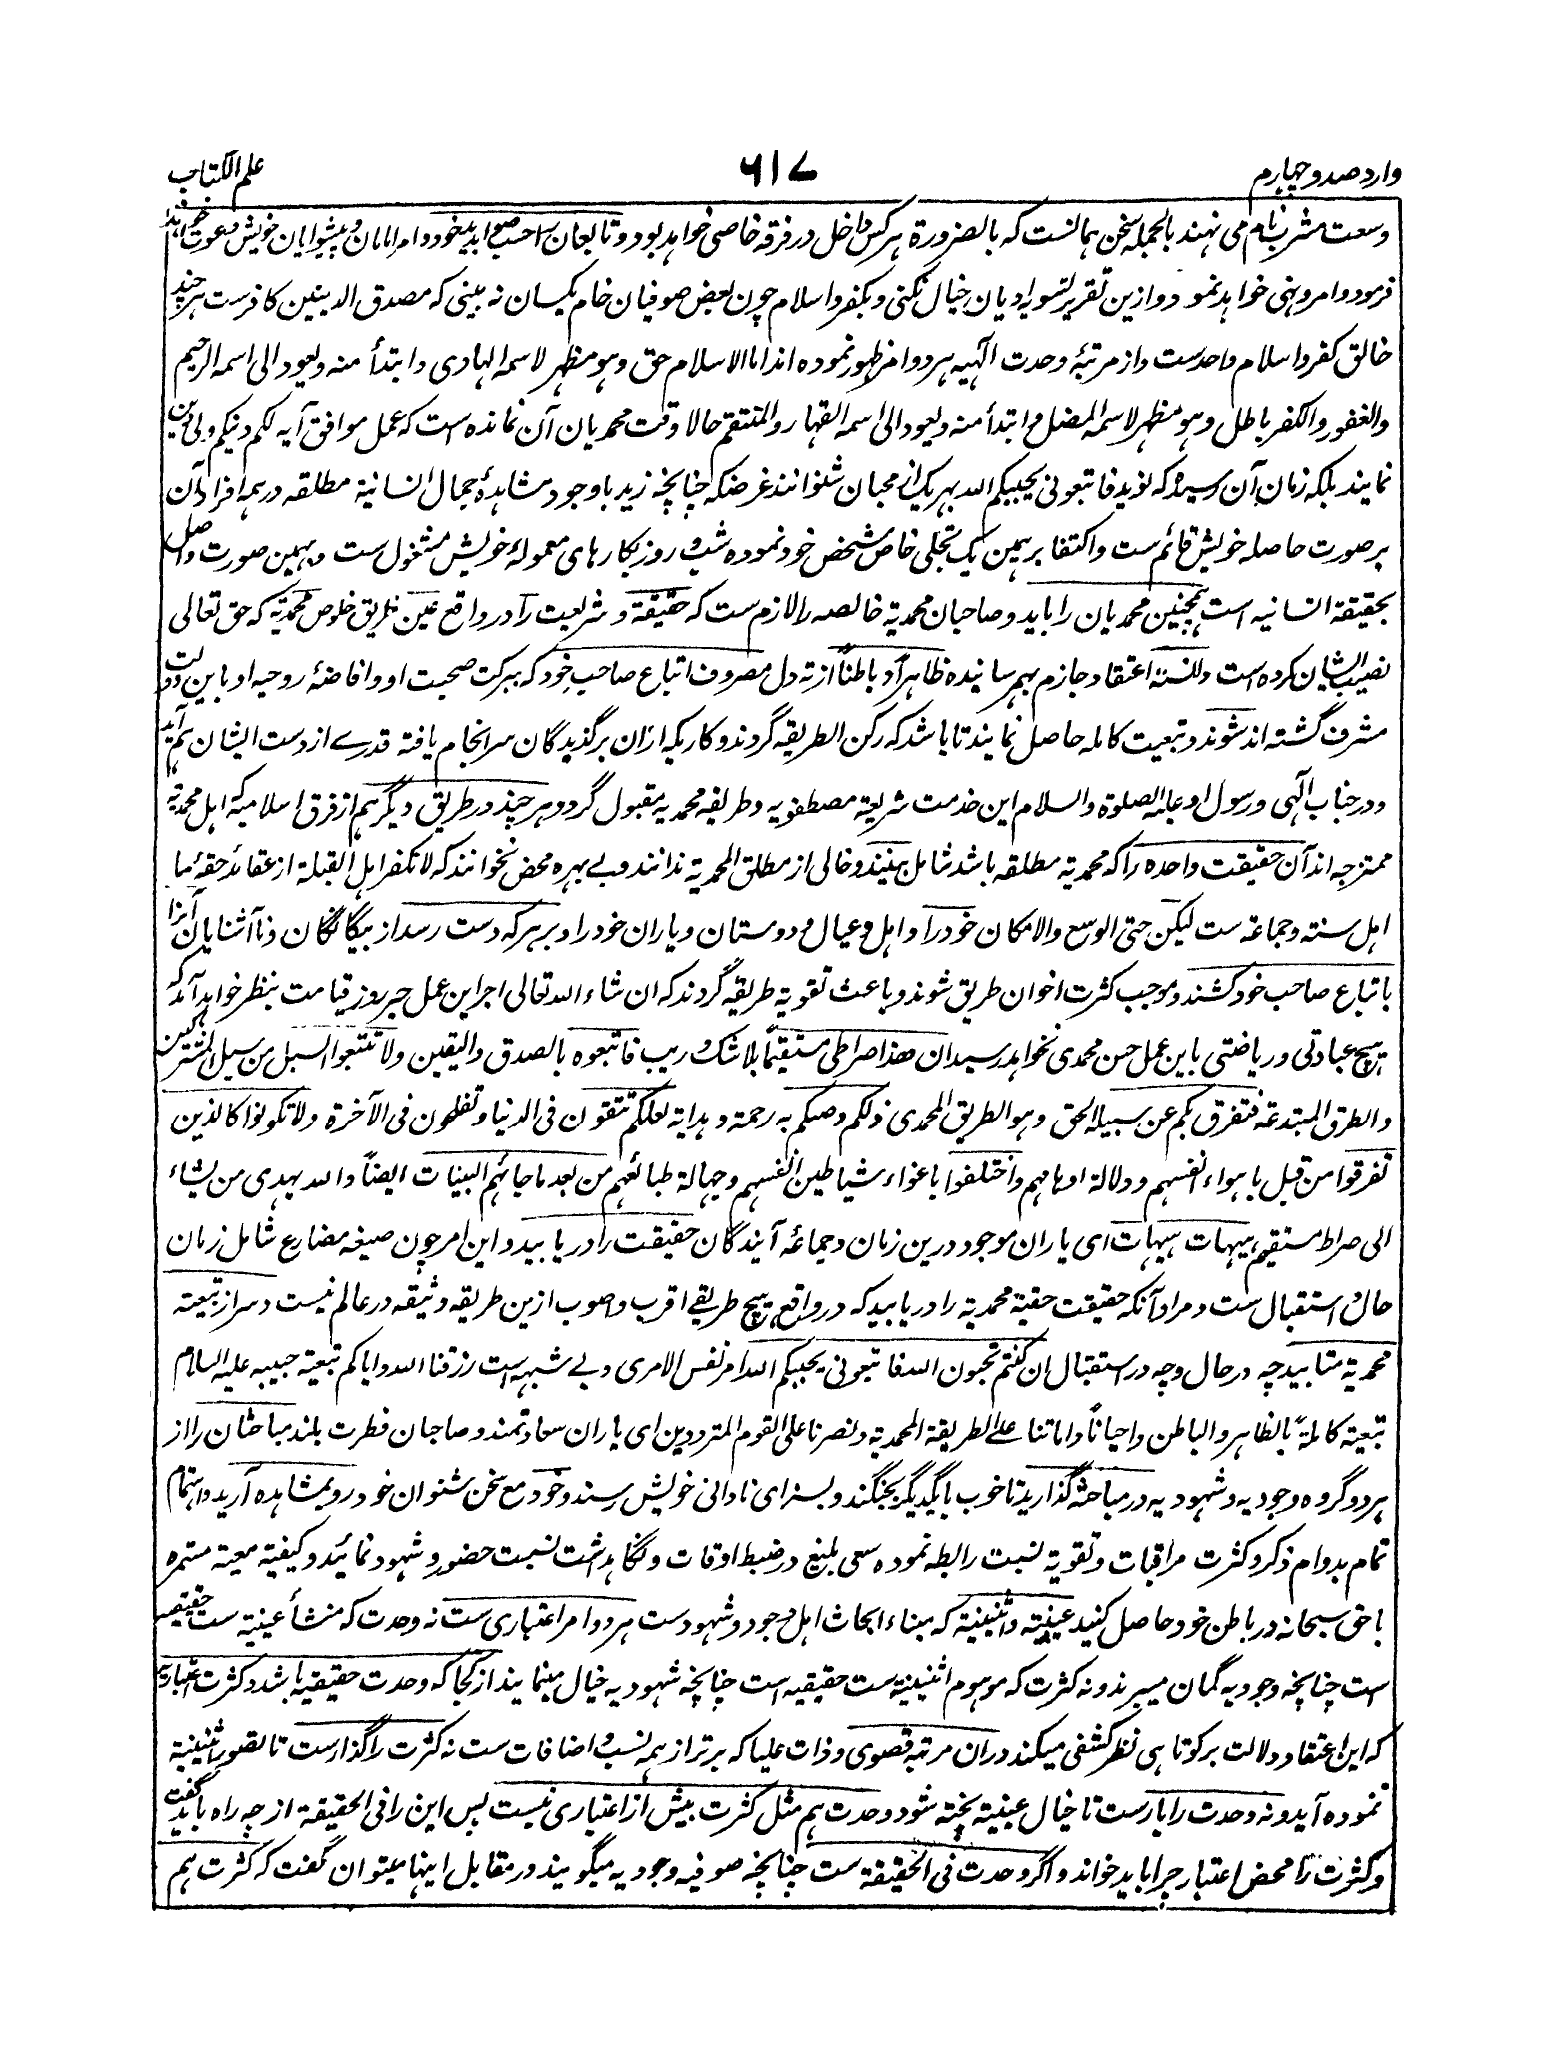 وارد صد و چهارم
۶۱۷
علم الکتاب
وسعت مشرب نام می نهند بالجمله سخن همانست که بالضرورة هر کس داخل در فرقه خاصی خواهد بود و تابعان را حسب صوابدید خود و امامان و پیشوایان خویش دعوت خواهد
فرمود و امر و نهی خواهد نمود و ازین تقریر تسویه ادیان خیال نکنی و بکفر و اسلام چون بعض صوفیان خام یکسان نه بینی که مصدق الدینین کافرست هر چند
خالق کفر و اسلام واحدست و از مرتبۀ وحدت آلهیه هر دو امر ظهور نموده اند اما الاسلام حق و هو مظهر لاسمه الهادی و ابتدأ منه و یعود الی اسمه الرحیم
والغفور و الکفر باطل و هو مظهر لاسمه المضل و ابتدأ منه و یعود الی اسمه القهار و المنتقم حالا وقت محمدیان آن نمانده است که عمل موافق آیه لکم دینکم ولی دین
نمایند بلکه زمان آن رسیده که نوید فاتبعونی یحببکم الله بهر یک از محبان شنوانند غرضکه چنانچه زید باوجود مشاهدۀ جمال انسانیة مطلقه در همه افراد آن
بر صورت حاصله خویش قائم ست و اکتفا بر همین یک تجلی خاص مشخص خود نموده شب و روز بکارهای معمولۀ خویش مشغول ست و بهمین صورت واصل
بحقیقة انسانیه است همچنین محمدیان را باید و صاحبان محمدیة خالصه را لازم ست که حقیقة و شریعت را در واقع عین طریق خلوص محمدیة که حق تعالی
نصیب ایشان کرده است دانسته اعتقاد جازم بهم رسانیده ظاهراً و باطناً از ته دل مصروف اتباع صاحب خود که ببرکت صحبت او و افاضۀ روحیه او باین دولت
مشرف گشته اند شوند و تبعیت کامله حاصل نمایند تا باشد که رکن الطریقه گردند و کاریکه ازان برگزیدگان سرانجام یافته قدرے از دست ایشان هم آید
و در جناب آلهی و رسول او علیه الصلوة والسلام این خدمت شریعة مصطفویه و طریقه محمدیه مقبول گردد هر چند در طریق دیگر هم از فرق اسلامیه که اهل محمدیة
ممتزجه اند آن حقیقت واحده را که محمدیة مطلقه باشد شامل بینند و خالی از مطلق المحمدیة ندانند و بے بهره محض نخوانند که لا نکفر اهل القبلة از عقائد حقۀ ما
اهل سنته و جماعة ست لیکن حتی الوسع والامکان خود را و اهل و عیال و دوستان و یاران خود را و بر هر که دست رسد از بیگانگان و ناآشنایان آنرا
باتباع صاحب خود کشند و موجب کثرت اخوان طریق شوند و باعث تقویة طریقه گردند که ان شاء الله تعالی اجر این عمل خیر روز قیامت بنظر خواهد آمد که
هیچ عبادتی و ریاضتی باین عمل حسن محمدی نخواهد رسید ان هذا صراطی مستقیماً بلا شک و ریب فاتبعوه بالصدق والیقین ولا تتبعوا السبل من سبل المشرکین
والطرق المبتدعة فتفرق بکم عن سبیله الحق وهو الطریق المحمدی ذلکم وصکم به رحمة و هدایة لعلکم تتقون فی الدنیا و تفلحون فی الآخرة ولا تکونوا کالذین
تفرقوا من قبل باهواء انفسهم و دلالة اوهامهم واختلفوا باغواء شیاطین انفسهم و جهالة طبائعهم من بعد ما جائهم البینات ایضاً والله یهدی من یشاء
الی صراط مستقیم هیهات هیهات ای یاران موجود درین زمان و جماعۀ آیندگان حقیقت را دریابید و این امر چون صیغه مضارع شامل زمان
حال و استقبال ست و مراد آنکه حقیقت حقیة محمدیة را دریابید که در واقع هیچ طریقے اقرب و اصوب ازین طریقه وثیقه در عالم نیست و سر از تبعیته
محمدیة متابید چه در حال و چه در استقبال ان کنتم تحبون الله فاتبعونی یحببکم الله امر نفس الامری و بے شبهه است رزقنا الله و ایاکم تبعیة حبیبه علیه السلام
تبعیة کاملة بالظاهر و الباطن و احیاناً و اماتنا علی الطریقة المحمدیة و نصرنا علی القوم المترددین ای یاران سعادتمند و صاحبان فطرت بلند مباحثان را از
هر دو گروه وجودیه و شهودیه در مباحثه گذارید تا خوب بایکدیگر بجنگند و بسزای نادانی خویش رسند و خود مع سخن شنوان خود رو بمشاهده آرید و اهتمام
تمام بدوام ذکر و کثرت مراقبات و تقویة نسبت رابطه نموده سعی بلیغ در ضبط اوقات و نگاهداشت نسبت حضور و شهود نمائید و کیفیة معیة مستمره
با حق سبحانه در باطن خود حاصل کنید عینیة و اثنینیة که مبناء ابحاث اهل وجود و شهود ست هر دو امر اعتباری ست نه وحدت که منشأ عینیة ست حقیقیه
است چنانچه وجودیه گمان میبرند و نه کثرت که موهوم اثنینیة ست حقیقیه است چنانچه شهودیه خیال مینمایند از کجا که وحدت حقیقیه باشد و کثرت اعتباریه
که این اعتقاد دلالت بر کوتاهی نظر کشفی میکند دران مرتبه قصوی و ذات علیا که برتر از همه نسب و اضافات ست نه کثرت را گذارست تا تصور اثنینیة
نموده آید و نه وحدت را بارست تا خیال عینیة پخته شود وحدت هم مثل کثرت بیش از اعتباری نیست پس این را فی الحقیقة از چه راه باید گفت
و کثرت را محض اعتبار چرا باید خواند و اگر وحدت فی الحقیقة ست چنانچه صوفیه وجودیه میگویند در مقابل اینها میتوان گفت که کثرت هم